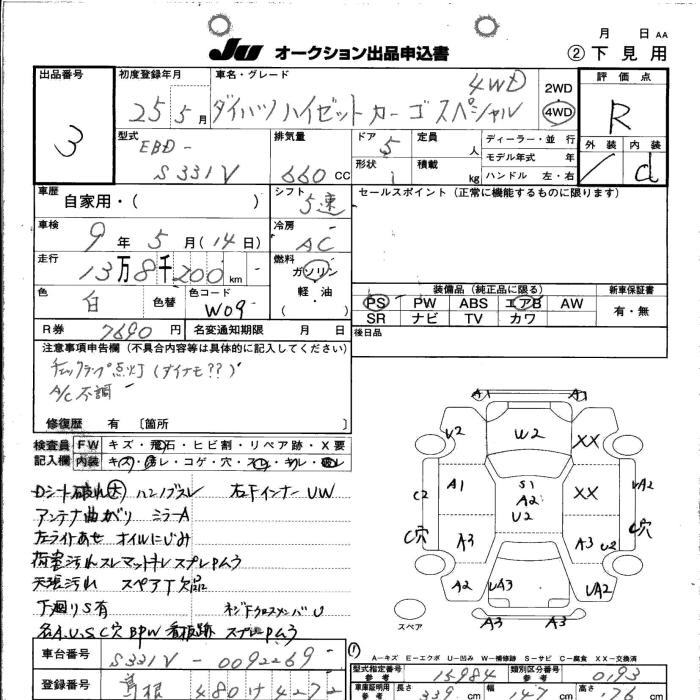 月 日 AA
JU オークション出品申込書 ② 下見用
出品番号 初度登録年月 車名・グレード 評価点
3 25 5月 ダイハツハイゼットカーゴスペシャル 4WD 2WD 4WD R
型式 排気量 ドア 定員 ディーラー・並行 外装 内装
EBD- S331V 660 CC 5 人 モデル年式 年 / d
形状 積載 kg ハンドル 左・右
車歴 自家用・( ) シフト 5速 セールスポイント(正常に機能するものに限ります)
車検 9年 5月(14日) 冷房 AC
走行 13万8千200km 燃料 ガソリン 軽・油 ( )
色 白 色替 色コード W09
装備品(純正品に限る) 新車保証書
PS PW ABS エアB AW 有・無
SR ナビ TV カワ
R券 7690円 名変通知期限 月 日 後日品
注意事項申告欄(不具合内容等は具体的に記入してください)
チェックランプ点灯(ダイナモ??)
A/C不調
修復歴 有 [箇所 ]
検査員 FW キズ・飛石・ヒビ割・リペア跡・X要
記入欄 内装 キズ・汚レ・コゲ・穴・スレ・キレ・破レ
Dシート破れ大 ハンドルスレ 左Fインナー UW
アンテナ曲がり ミラーA
左ライトあせ オイルにじみ
荷室汚れスレ マットキレ スプレPムラ
天張汚れ スペアT欠品
下廻りS有 ネジFクロスメンバU
各A.U.S.C穴 BPW 看板跡 スプレPムラ
A1 A1
U2 W2 XX
A1 S1 XX UA2
C2 A2
U2
C穴 A3 A3 U2 C穴
A2 UA3 UA2
A3 A3
スペア
A-キズ E-エクボ U-凹み W-補修跡 S-サビ C-腐食 XX-交換済
車台番号 S331V-0092269
型式指定番号 参考 15984 類別区分番号 参考 0193
登録番号 島根 480 け 4272
車庫証明用 参考 長さ 339cm 幅 147cm 高さ 176